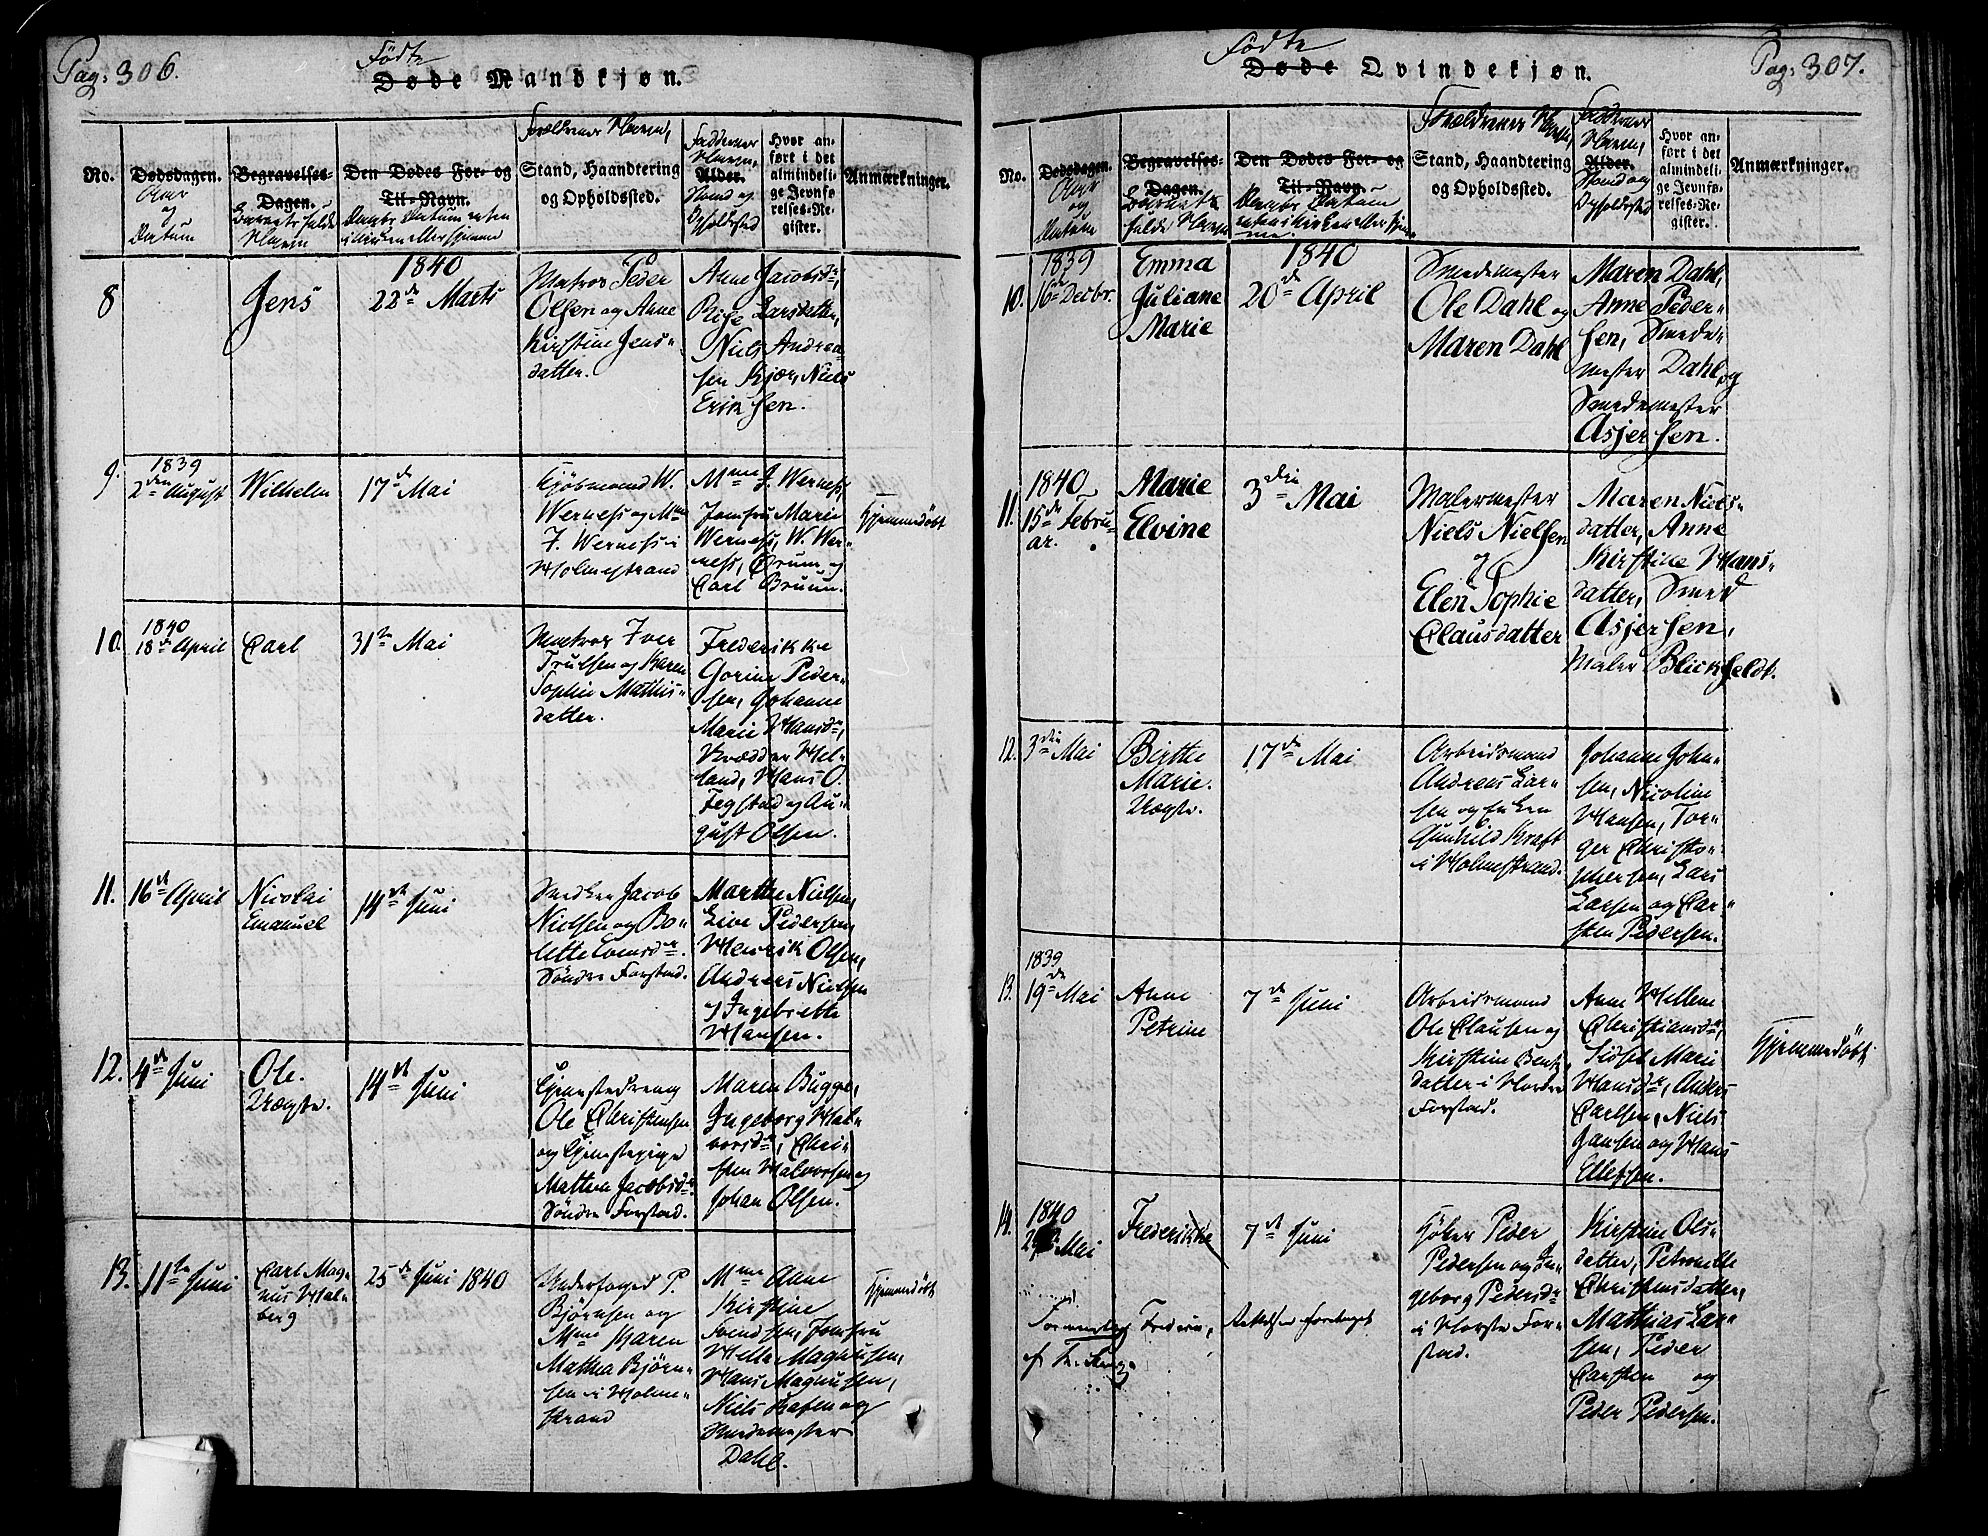 Pag: 306.
Fødte
Døde Mandkjøn.
No.
Dødsdagen.
Aar
og
Datum
Begravelses-
Dagen.
Barnets fulde
Navn
Den Dødes For- og
Til-Navn.
Daabs Datum enten
i Kirken eller hjemme
Forældrenes Navn,
Stand, Haandtering
og Opholdssted.
Faddernes
Navn,
Alder.
Stand og
Opholdssted
Hvor an-
ført i det
almindeli-
ge Jevnfø-
relses-Re-
gister.
Anmærkninger.
8
Jens
1840
22de Marts
Matros Peder
Olsen og Anne
Kirstine Jens-
datter.
Anne Jacobsdr,
Larsdatter,
Niels Andrea-
sen Kjær, Niels
Eriksen.
9.
1839
2den August
Wilhelm
17de Mai
Kjøbmand W.
Werness og Mme
J. Werness i
Holmestrand
Mme J. Werness,
Jomfru Marie
Werness, W. Wer-
ness, Orum og
Carl Bruun.
Hjemmedøbt
10.
1840
18de April
Carl
31te Mai
Matros Iver
Trulsen og Karen
Sophie Mathis-
datter.
Frederikke
Gorine Peder-
sen, Johanne
Marie Hansdr,
Hel-
land, Hans O.
Tegstad og Au-
gust Olsen.
11.
16de April
Nicolai
Emanuel
14de Juni
Snedker Jacob
Nielsen og Bo-
lette Evensdr.
Søndre Forstad.
Marthe Nielsen,
Live Pedersen,
Henrik Olsen,
Andreas Nielsen
og Ingebrette
Hansen.
12.
4de Juni
Ole.
Uægte.
14de Juni
Tjenestedreng
Ole Christensen
og Tjenestepige
Mathea Jacobsdr
Søndre Forstad.
Maren Bugge,
Ingeborg Hal-
vorsdr, Chri-
sten Halvorsen og
Johan Olsen.
13.
11te Juni
Carl Mag-
nus Hal-
berg
25de Juni 1840
Underfoged P.
Bjørnsen og
Mme Karen
Mathea Bjørn-
sen i Holme-
strand
Mme Anne
Kirstine
Svendsen, Jomfru
Helle Magnusen,
Hans Magnusen,
Niels Hansen og
Smedemester
Dahl.
Hjemmedøbt
Pag: 307.
Fødte
Døde Qvindekjøn.
No.
Dødsdagen.
Aar
og
Datum
Begravelses-
Dagen.
Barnets
fulde Navn
Den Dødes For- og
Til-Navn.
Daabs Datum
enten i Kirken eller hjem-
me.
Forældrenes Navn,
Stand, Haandtering
og Opholdssted.
Faddernes
Navn,
Alder.
Stand og
Opholdssted
Hvor an-
ført i det
almindeli-
ge Jevnfø-
relses-Re-
gister.
Anmærkninger.
10.
1839
16de Decbr.
Emma
Juliane
Marie
1840
20de April
Smedemester
Ole Dahl og
Maren Dahl
Maren Dahl,
Anne Peder-
sen, Smede-
mester Dahl, og
Smedemester
Asjersen.
11.
1840
15de Febru-
ar.
Marie
Elvine
3die Mai
Malermester
Niels Nielsen
og
Elen Sophie
Clausdatter
Maren Niels-
datter, Anne
Kirstine Hans-
datter, Smed
Asjersen,
Maler Blickfeldt.
12.
3die Mai
Birthe
Marie.
Uægte.
17de Mai
Arbeidsmand
Andreas Lar-
sen og Enken
Gunhild Kraft
i Holmestrand.
Johanne John-
sen, Nicoline
Hansen, Tor-
ger Christo-
phersen, Lars
Larsen og Car-
sten Pedersen.
13.
1839
19de Mai
Anne
Petrine
7de Juni
Arbeidsmand
Ole Clausen og
Kirstine Bents-
datter i Nordre
Forstad.
Anne Hellene
Christiansdr,
Sidsel Marie
Hansdr, Anders
Carlsen, Niels
Jansen og Hans
Ellefsen.
Hjemmedøbt.
14.
1840
Mai
Frederikke
7de Juni
Høker Peder
Pedersen og In-
geborg Pedersdr
i Nordre For-
stad.
Kirstine Ols-
datter, Petronelle
Christensdatter,
Mathias Lar-
sen, Peder
Carsten og
Peder Pedersen.
Rettelse foretaget